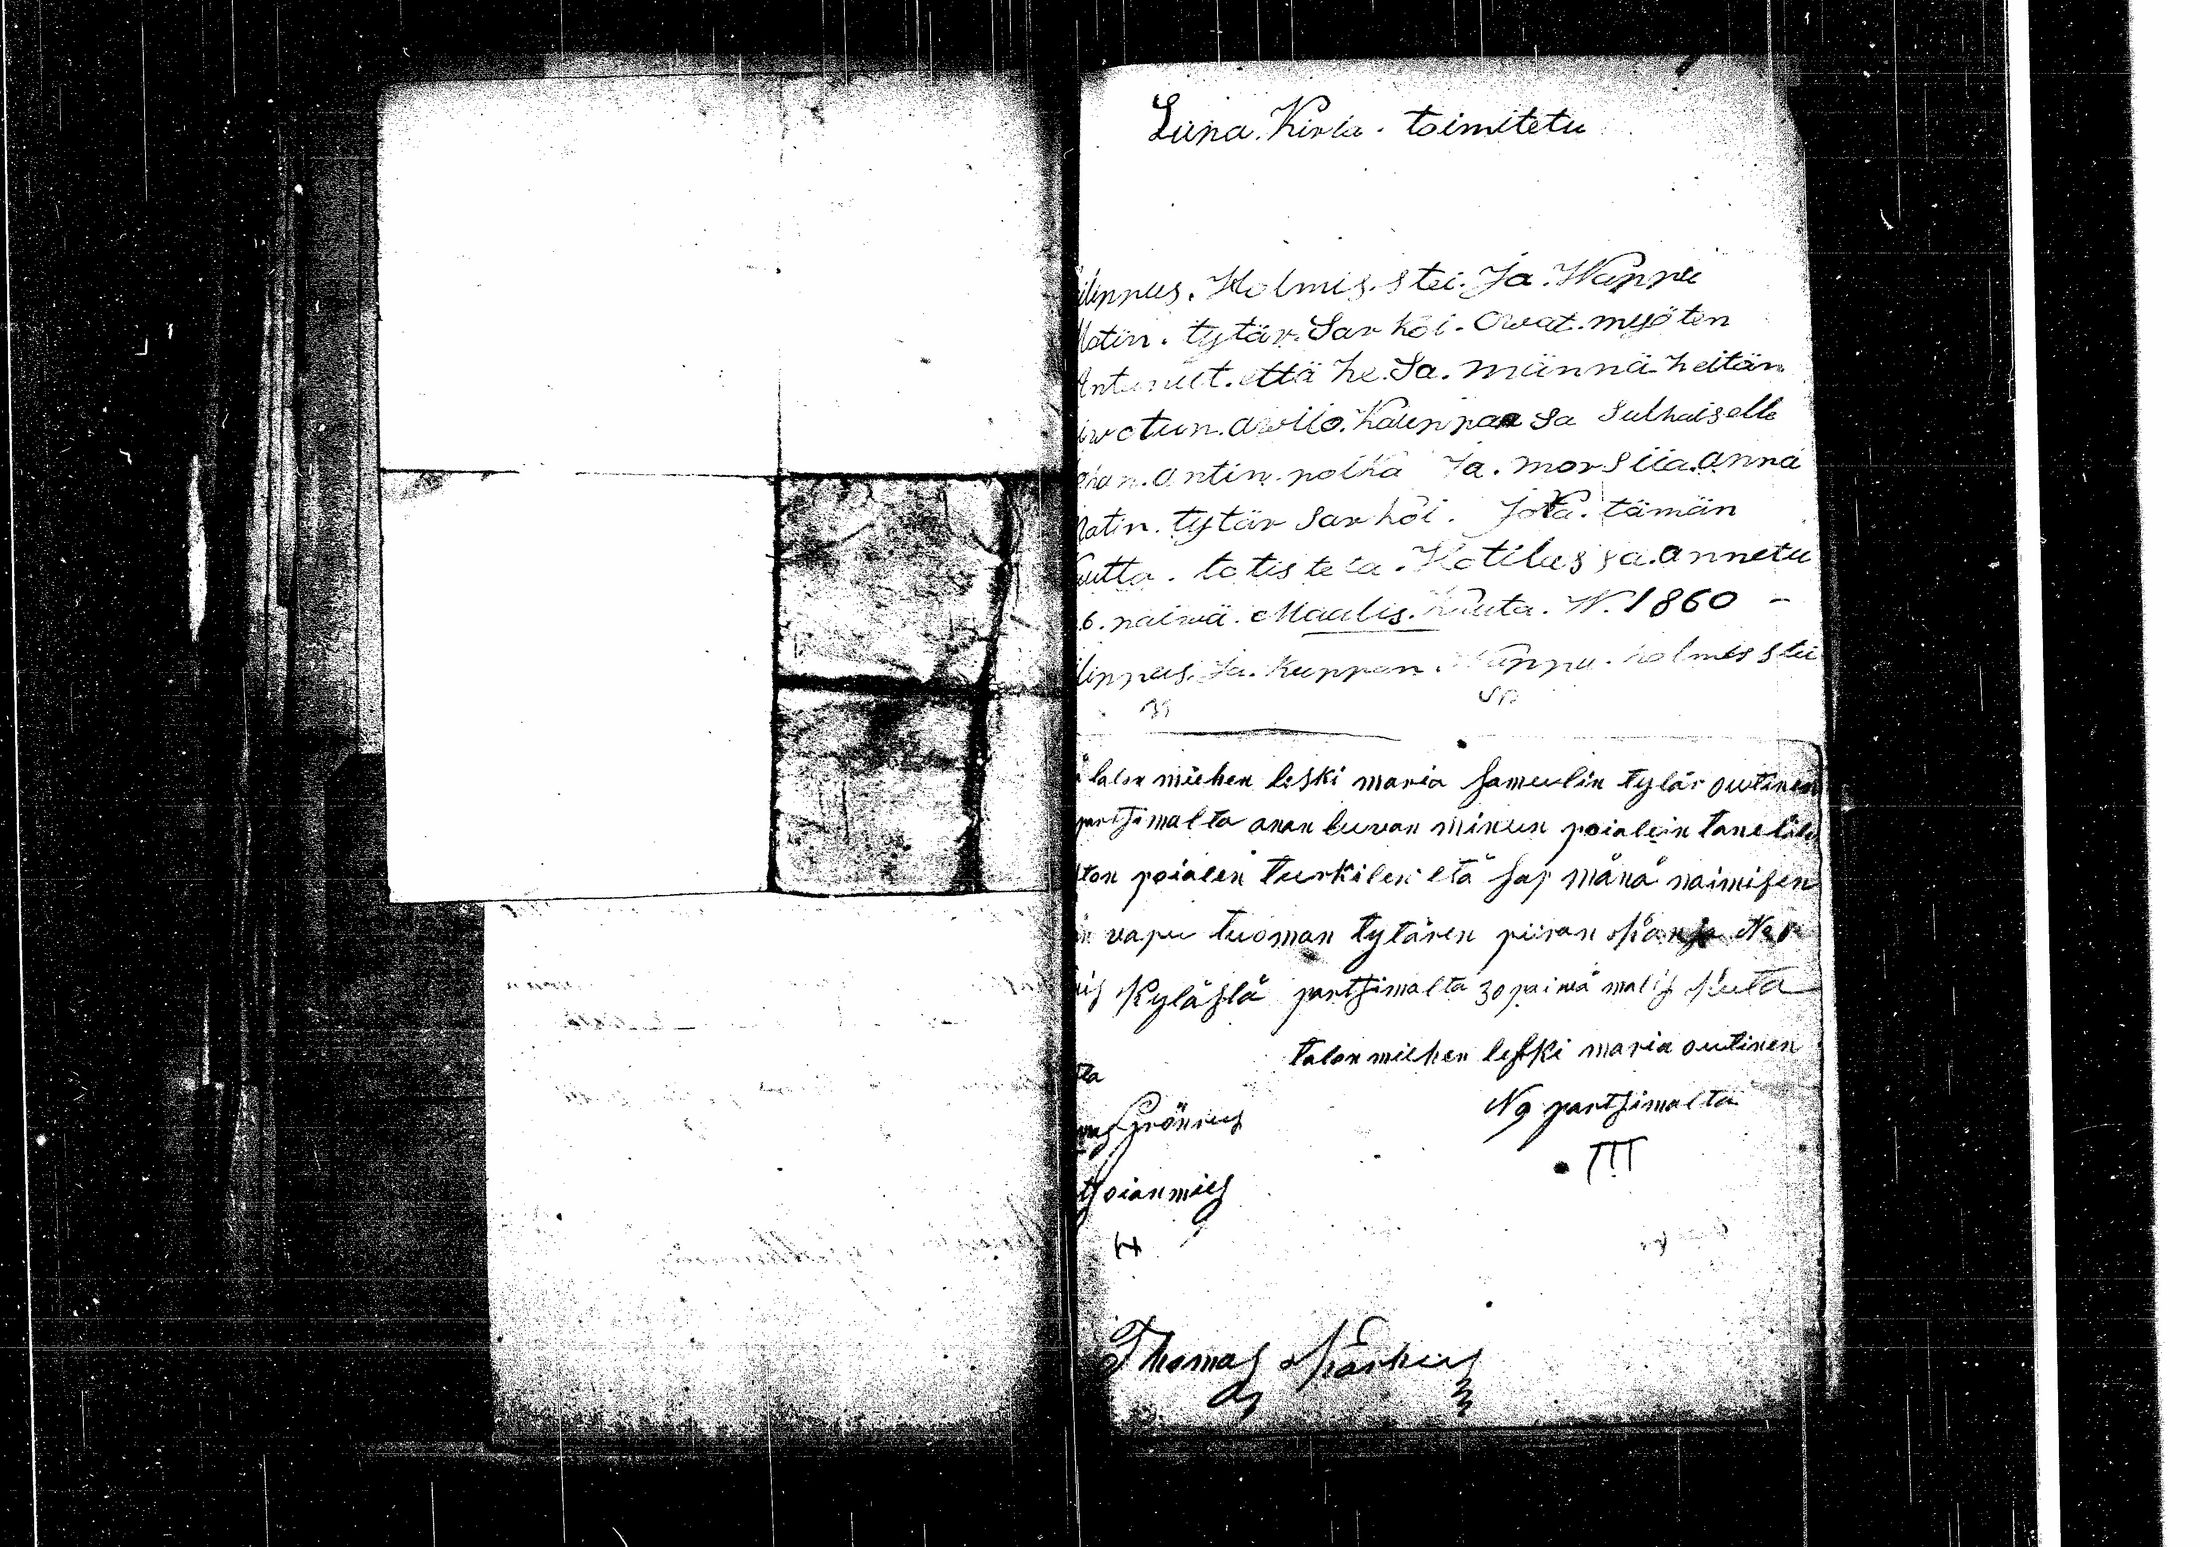 Luna. Kiria. toimitetu
ilippus. Holmis. stei. Ja. Wappu
Matin. tytär. Sar köi. owat. myöten
Antunut. että he. Sa. männä heitän
awiio. Kauppaa Sa Sulhaiselle
antin. poika Ja. morsiia. anna
Matin. tytär Sar köi. Joka. tämän
Kautta. totis teta. Kotilussa. annetu
6. paiwä. Maalis. Kuuta. W. 1860 -
ilippus. Ja. Kuppan. Wappu. holmis stei
talon miehen leski maria Samulin tytär outinen
partsimalta anan luvan minun poialein taneli
poialen turkilen etä sap mänä naimisen
vapu tuoman tytären piiran
Kylästä partsimalta 30 paiwä malis kuta
talon miehen leski maria outinen
N9 partsimalta
Grönrus
TTT
oianmies
Thomas